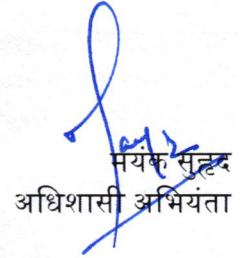 मयंक सुहृद
अधिशासी अभियंता